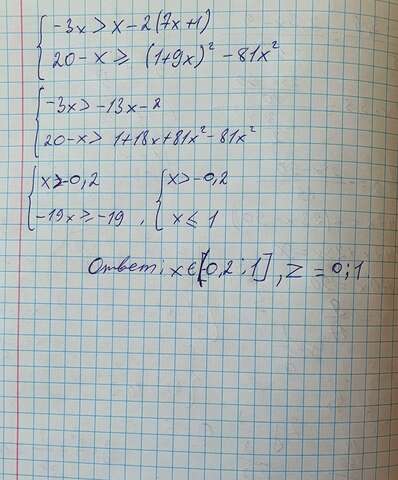 -3x > x - 2(7x+1)
20 - x ≥ (1+9x)² - 81x²
-3x > -13x - 2
20 - x > 1 + 18x + 81x² - 81x²
x > -0,2 x > -0,2
-19x ≥ -19 , x ≤ 1
Ответ: x ∈ [0,2 ; 1] , Z = 0; 1